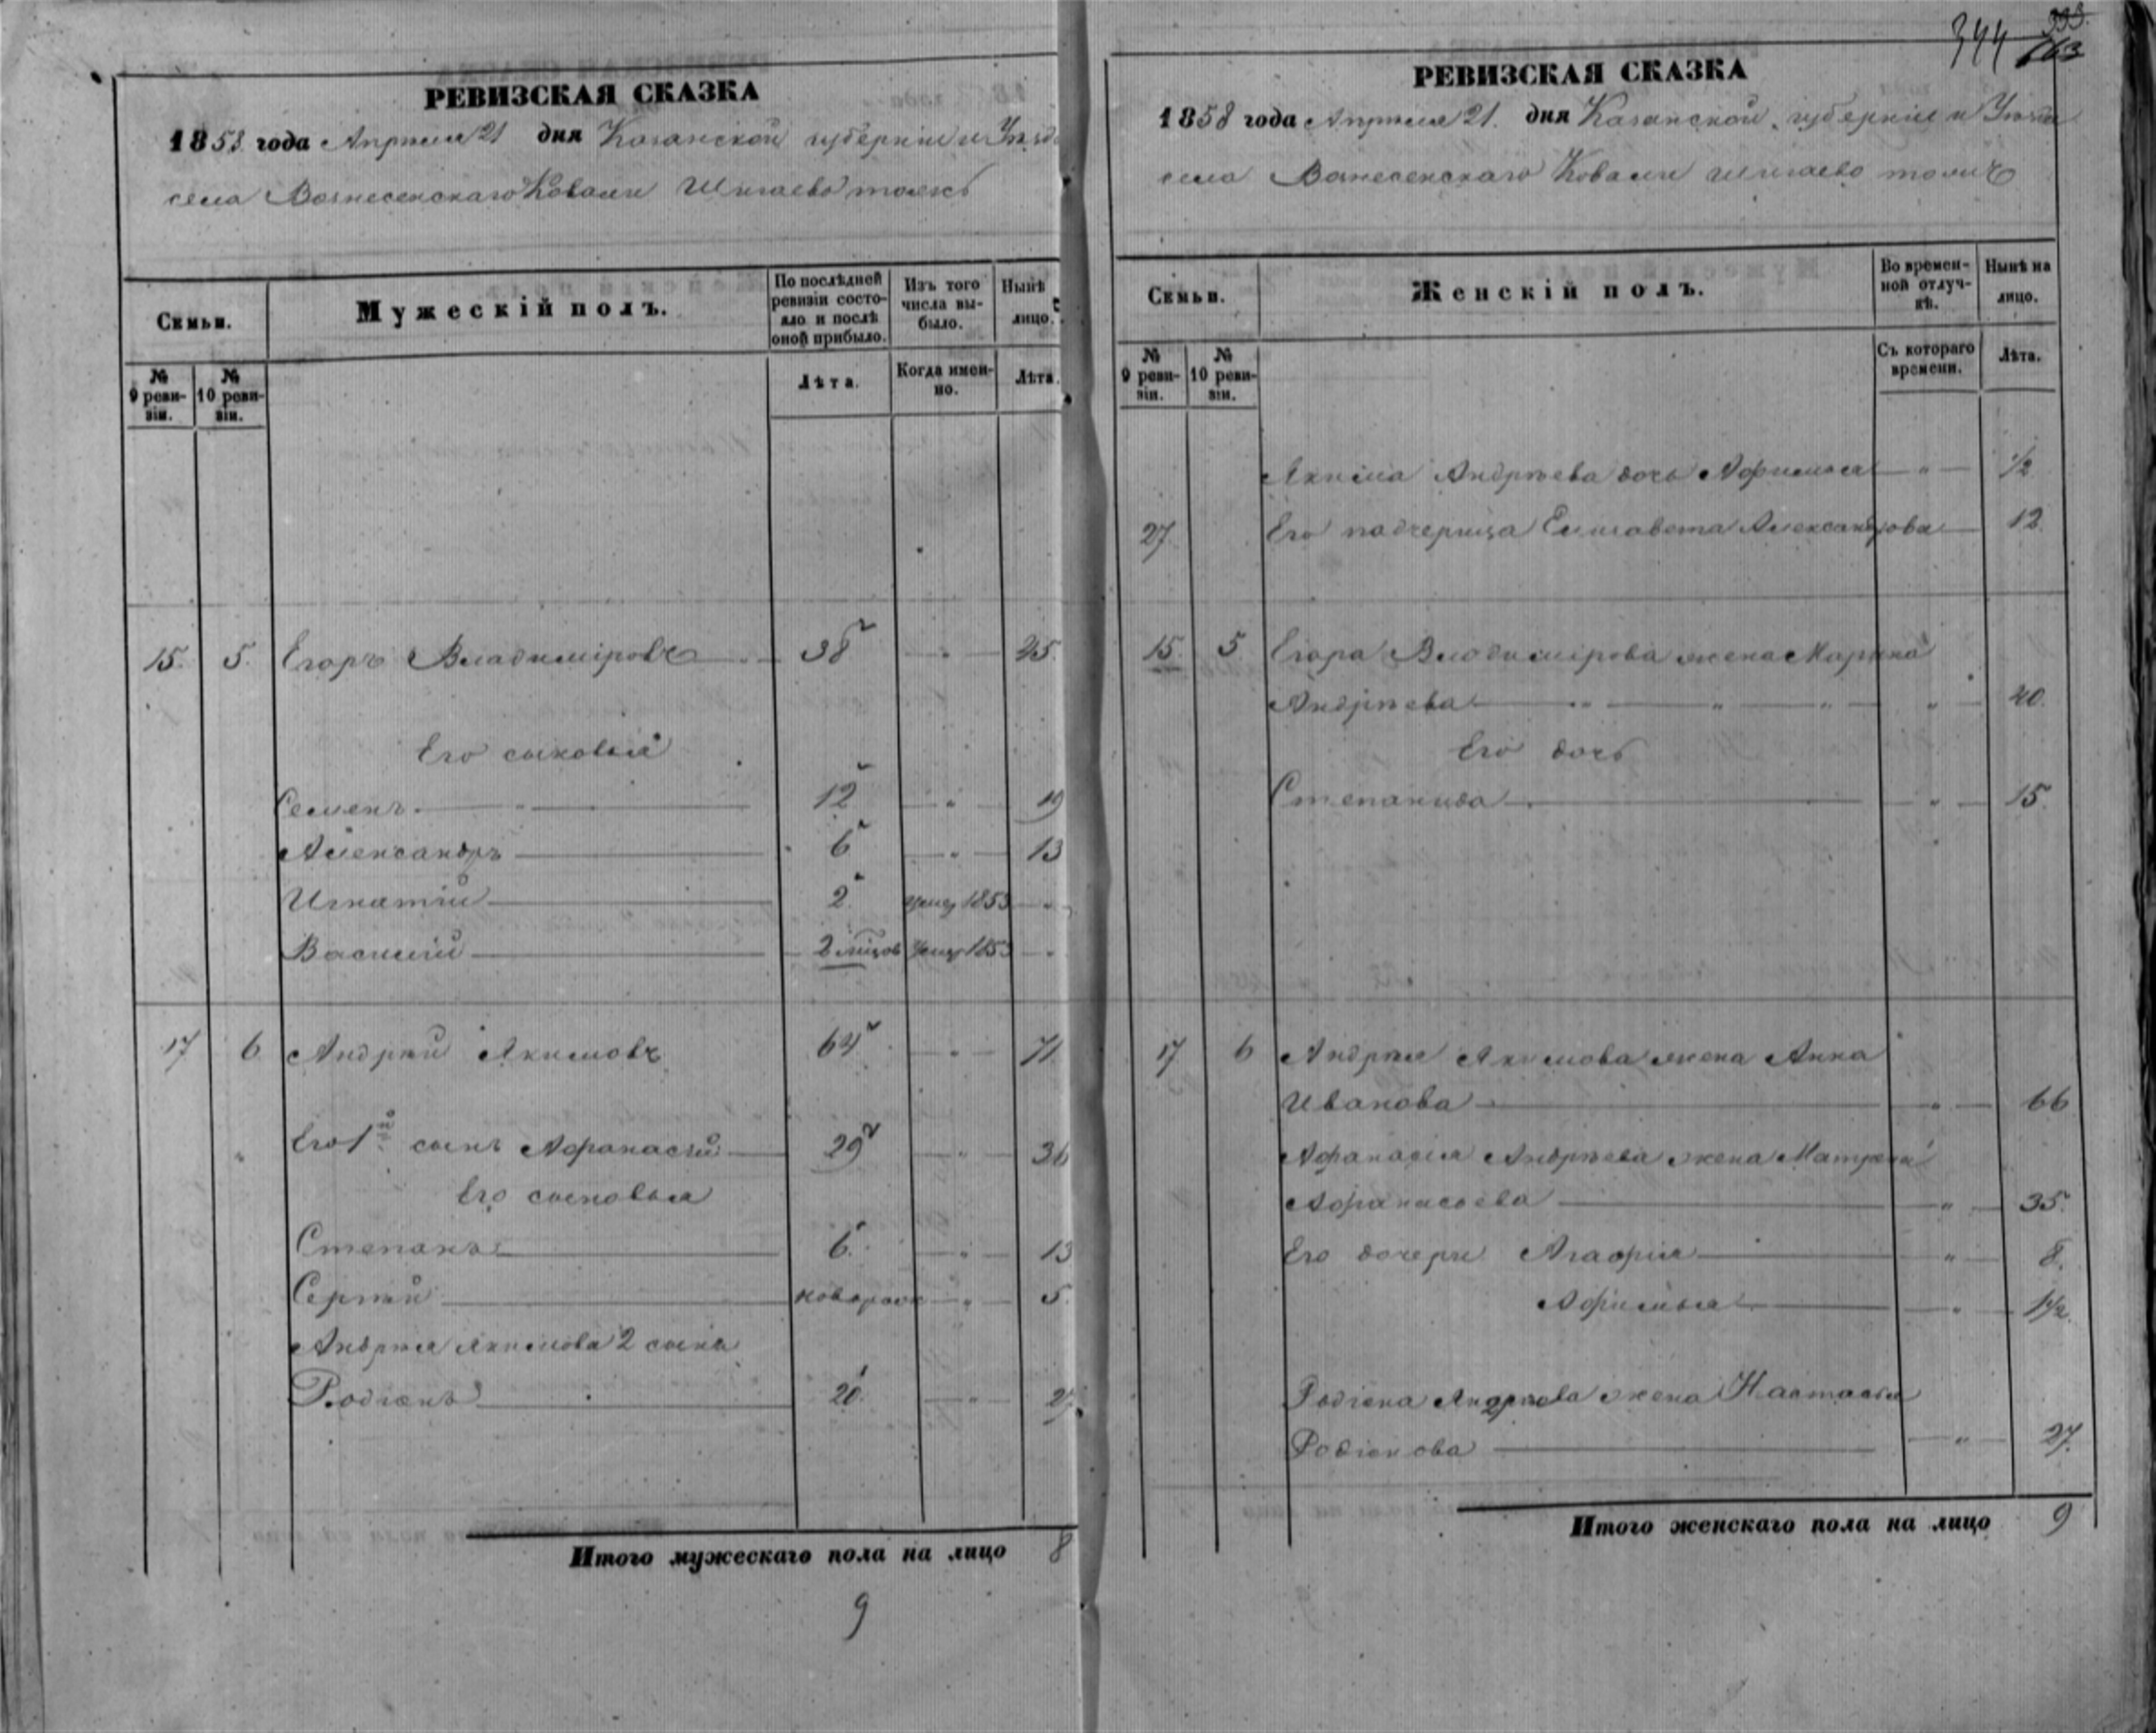 РЕВИЗСКАЯ СКАЗКА
1858 года Апреля 21 дня Казанской губерніи и Уѣзда
села Вознесенскаго Ковали тожъ
Семьи.
Мужескій полъ.
По послѣдней ревизіи состояло и послѣ оной прибыло.
Изъ того числа выбыло.
Нынѣ лицо.
№ 9 ревизіи.
№ 10 ревизіи.
Лѣта.
Когда именно.
Лѣта.
15. 5. Егоръ Владиміровъ 38 " 45.
Его сыновья
Семенъ " 12 " 19
Александръ 6 " 13
Игнатій 2 умер 1853 "
Василій 2 умер 1853 "
17 6 Андрей Якимовъ 64 " 71
" Его 1й сынъ Афанасій 29 " 36
Его сыновья
Степанъ 6. " 13
Сергѣй новорожд " 5.
Андрея Якимова 2 сынъ
Родіонъ 20. " 27
Итого мужескаго пола на лицо 8
9
344
163
РЕВИЗСКАЯ СКАЗКА
1858 года Апреля 21. дня Казанской губерніи и Уѣзда
села Вознесенскаго Ковали тожъ
Семьи.
Женскій полъ.
Во временной отлучкѣ.
Нынѣ на лицо.
№ 9 ревизіи.
№ 10 ревизіи.
Съ котораго времени.
Лѣта.
Якима Андреева дочь Афимья " 1/2
27. Его падчерица Елизавета Александрова 12.
15. 5 Егора Владимірова жена Марина
Андреева " " " " 40.
Его дочь
Степанида " 15.
17 6 Андрея Якимова жена Анна
Иванова " 66
Афанасія Андреева жена Матрена
Афанасьева " 35.
Его дочери Агафія " 8.
Афимья " 1 1/2.
Родіона Андреева жена Настасья
Родіонова " 27.
Итого женскаго пола на лицо 9